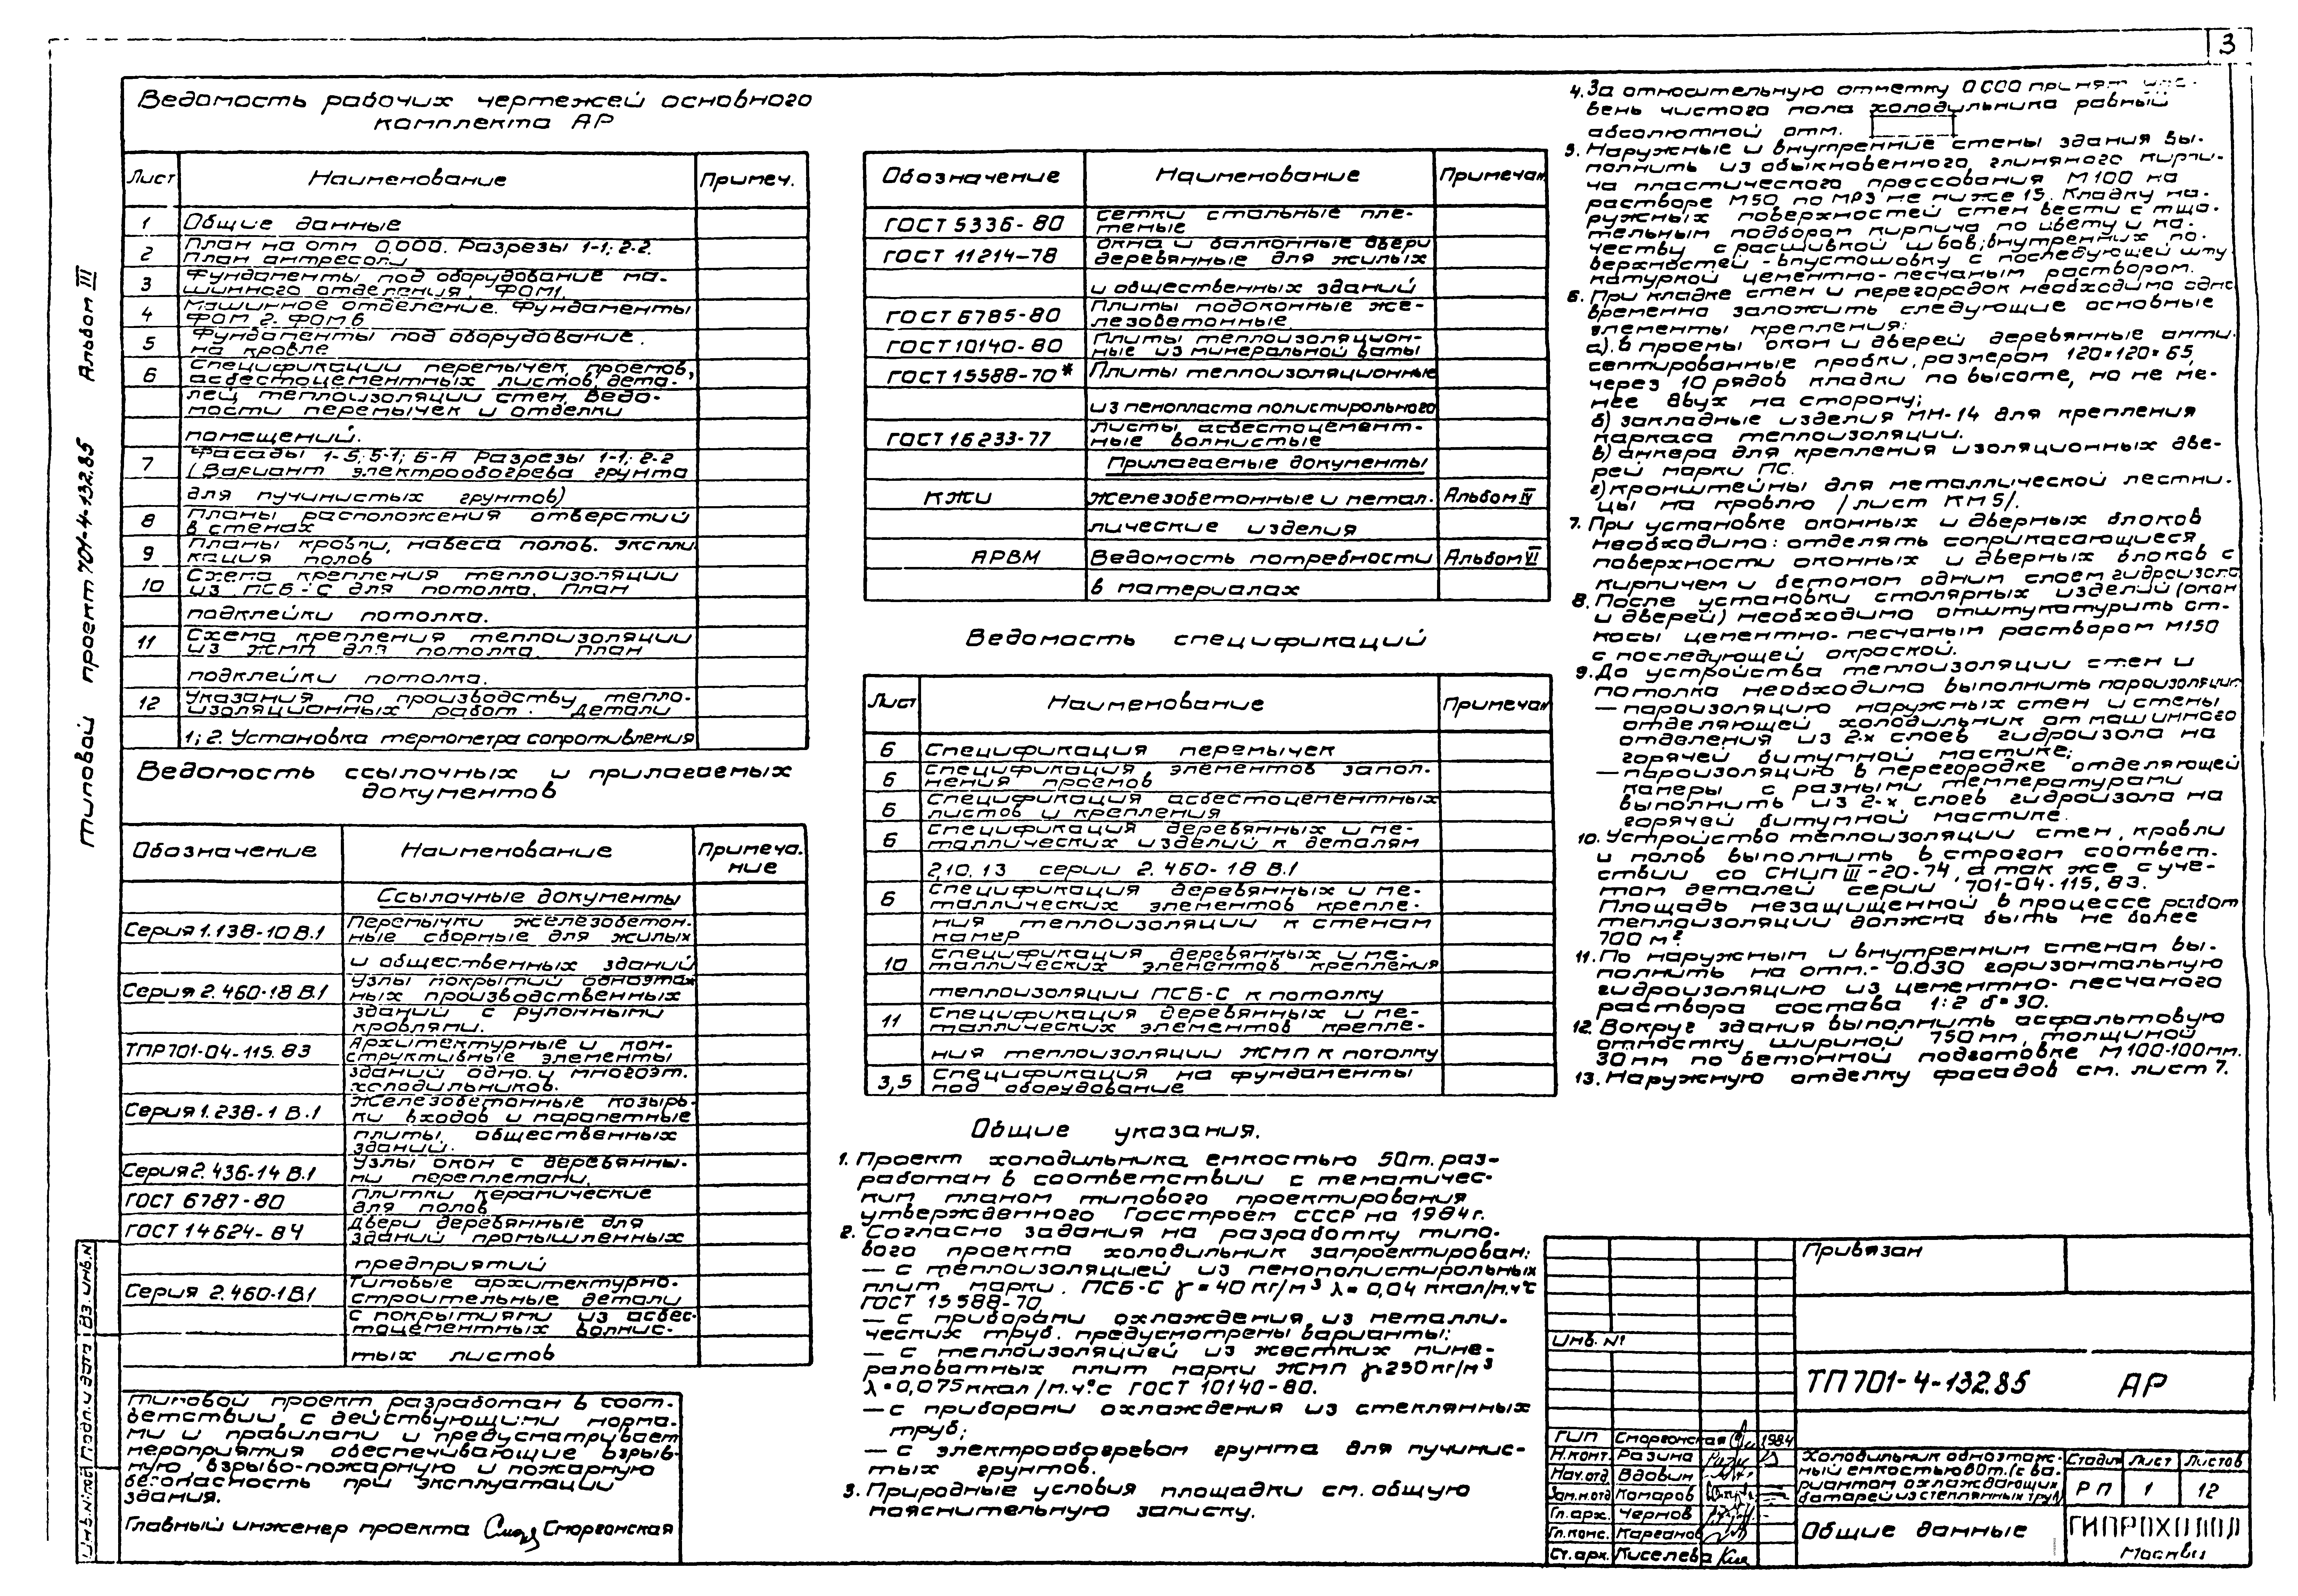 3
Типовой проект 701-4-132.85 Альбом III
Ведомость рабочих чертежей основного
комплекта АР
Лист Наименование Примеч.
1 Общие данные
2 План на отм 0,000. Разрезы 1-1; 2-2.
План антресоли
3 Фундаменты под оборудование ма-
шинного отделения. ФОМ1.
4 Машинное отделение. Фундаменты
ФОМ 2. ФОМ6
5 Фундаменты под оборудование.
на кровле
6 Спецификации перемычек, проемов,
асбестоцементных листов, дета-
лей теплоизоляции стен. Ведо-
мости перемычек и отделки
помещений.
7 Фасады 1-5; 5-1; Б-А Разрезы 1-1; 2-2
(Вариант электрообогрева грунта
для пучинистых грунтов)
8 Планы расположения отверстий
в стенах
9 Планы кровли, навеса полов. Экспли
кация полов
10 Схема крепления теплоизоляции
из ПСБ-С для потолка. План
подклейки потолка.
11 Схема крепления теплоизоляции
из ЖМП для потолка. План
подклейки потолка.
12 Указания по производству тепло-
изоляционных работ. Детали
1; 2. Установка термометра сопротивления
Ведомость ссылочных и прилагаемых
документов
Обозначение Наименование Примеча.
ние
Ссылочные документы
Серия 1.138-10 В.1 Перемычки железобетон-
ные сборные для жилых
и общественных зданий
Серия 2.460-18 В.1 Узлы покрытий одноэтаж
ных производственных
зданий с рулонными
кровлями.
ТПР 701-04-115.83 Архитектурные и кон-
структивные элементы
зданий одно. и многоэт.
холодильников.
Серия 1.238-1 В.1 Железобетонные козырь-
ки входов и парапетные
плиты общественных
зданий.
Серия 2.436-14 В.1 Узлы окон с деревянны-
ми переплетами.
ГОСТ 6787-80 Плитки керамические
для полов
ГОСТ 14624-84 Двери деревянные для
зданий промышленных
предприятий
Серия 2.460-1 В1 Типовые архитектурно-
строительные детали
с покрытиями из асбес-
тоцементных волнис-
тых листов
Типовой проект разработан в соот-
ветствии с действующими норма-
ми и правилами и предусматривает
мероприятия обеспечивающие взрыв-
ную взрыво-пожарную и пожарную
безопасность при эксплуатации
здания.
Главный инженер проекта Сморгонская
Инв.N под Подп. и дата Вз. инв.N
Обозначение Наименование Примечан
ГОСТ 5336-80 Сетки стальные пле-
теные
ГОСТ 11214-78 Окна и балконные двери
деревянные для жилых
и общественных зданий
ГОСТ 6785-80 Плиты подоконные же-
лезобетонные
ГОСТ 10140-80 Плиты теплоизоляцион-
ные из минеральной ваты
ГОСТ 15588-70* Плиты теплоизоляционные
из пенопласта полистирольного
ГОСТ 16233-77 Листы асбестоцемент-
ные волнистые
Прилагаемые документы
КЖИ Железобетонные и метал. Альбом IV
лические изделия
АРВМ Ведомость потребности Альбом VI
в материалах
Ведомость спецификаций
Лист Наименование Примечан
6 Спецификация перемычек
6 Спецификация элементов запол-
нения проемов
6 Спецификация асбестоцементных
листов и крепления
6 Спецификация деревянных и ме-
таллических изделий к деталям
2,10,13 серии 2.460-18 В.1
6 Спецификация деревянных и ме-
таллических элементов крепле-
ния теплоизоляции к стенам
камер
10 Спецификация деревянных и ме-
таллических элементов крепления
теплоизоляции ПСБ-С к потолку
11 Спецификация деревянных и ме-
таллических элементов крепле-
ния теплоизоляции ЖМП к потолку
3,5 Спецификация на фундаменты
под оборудование
Общие указания.
1. Проект холодильника емкостью 50т. раз-
работан в соответствии с тематичес-
ким планом типового проектирования
утвержденного Госстроем СССР на 1984г.
2. Согласно задания на разработку типо-
вого проекта холодильник запроектирован:
— с теплоизоляцией из пенополистирольных
плит марки. ПСБ-С γ=40 кг/м³ λ=0,04 ккал/м.ч°с
ГОСТ 15588-70
— с приборами охлаждения из металли-
ческих труб. предусмотрены варианты:
— с теплоизоляцией из жестких мине-
раловатных плит марки ЖМП γ=250кг/м³
λ=0,075ккал/м.ч°с ГОСТ 10140-80.
— с приборами охлаждения из стеклянных
труб;
— с электрообогревом грунта для пучинис-
тых грунтов.
3. Природные условия площадки см. общую
пояснительную записку.
4. За относительную отметку 0.000 принят уро-
вень чистого пола холодильника равный
абсолютной отм.
5. Наружные и внутренние стены здания вы-
полнить из обыкновенного, глиняного кирпи-
ча пластического прессования М100 на
растворе М50 по МРЗ не ниже 15. Кладку на-
ружных поверхностей стен вести с тща-
тельным подбором кирпича по цвету и ка-
честву с расшивкой швов; внутренних по-
верхностей - впустошовку с последующей шту
катуркой цементно-песчаным раствором.
6. При кладке стен и перегородок необходимо одно
временно заложить следующие основные
элементы крепления:
а). в проемы окон и дверей деревянные анти-
септированные пробки, размером 120×120×65,
через 10 рядов кладки по высоте, но не ме-
нее двух на сторону;
б) закладные изделия МН-14 для крепления
каркаса теплоизоляции.
в) анкера для крепления изоляционных две-
рей марки ПС.
г) кронштейны для металлической лестни-
цы на кровлю /лист КМ5/.
7. При установке оконных и дверных блоков
необходимо: отделять соприкасающиеся
поверхности оконных и дверных блоков с
кирпичем и бетоном одним слоем гидроизола
8. После установки столярных изделий (окон
и дверей) необходимо отштукатурить от-
косы цементно-песчаным раствором М150
с последующей окраской.
9. До устройства теплоизоляции стен и
потолка необходимо выполнить пароизоляцию
— пароизоляцию наружных стен и стены
отделяющей холодильник от машинного
отделения из 2-х слоев гидроизола на
горячей битумной мастике;
— пароизоляцию в перегородке отделяющей
камеры с разными температурами
выполнить из 2-х слоев гидроизола на
горячей битумной мастике.
10. Устройство теплоизоляции стен, кровли
и полов выполнить в строгом соответ-
ствии со СНиП III-20-74, а так же с уче-
том деталей серии 701-04-115,83.
Площадь незащищенной в процессе работ
теплоизоляции должна быть не более
700 м².
11. По наружным и внутренним стенам вы-
полнить на отм.- 0.030 горизонтальную
гидроизоляцию из цементно-песчаного
раствора состава 1:2 δ=30.
12. Вокруг здания выполнить асфальтовую
отмостку шириной 750мм, толщиной
30мм по бетонной подготовке М100-100мм.
13. Наружную отделку фасадов см. лист 7.
Привязан
Инв. N°
ТП 701-4-132.85 АР
ГИП Сморгонская 1984
Н.конт. Разина
Нач.отд Вдовин
Зам.н.отд Комаров
Гл.арх. Чернов
Гл.конс. Карганов
Ст.арх. Киселева
Холодильник одноэтаж-
ный емкостью 50т. (с ва-
риантом охлаждающих
батарей из стеклянных труб)
Стадия Лист Листов
РП 1 12
Общие данные
ГИПРОХОЛОД
Москва